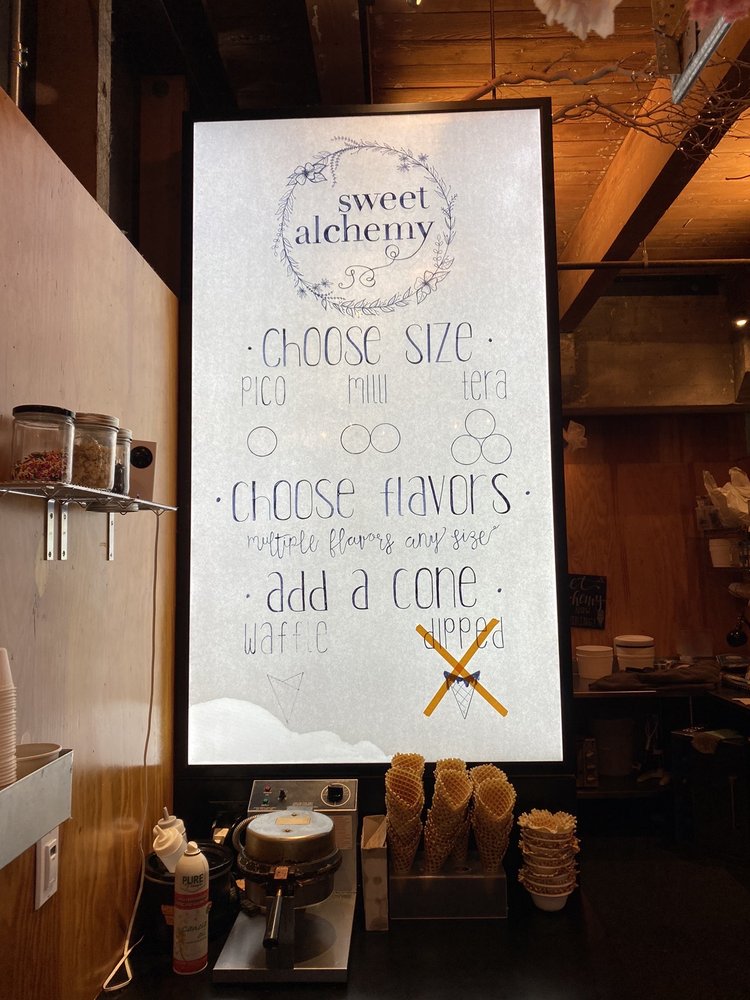 sweet
alchemy
· choose size ·
pico milli tera
· choose flavors ·
multiple flavors any size
· add a cone ·
waffle dipped
PURE